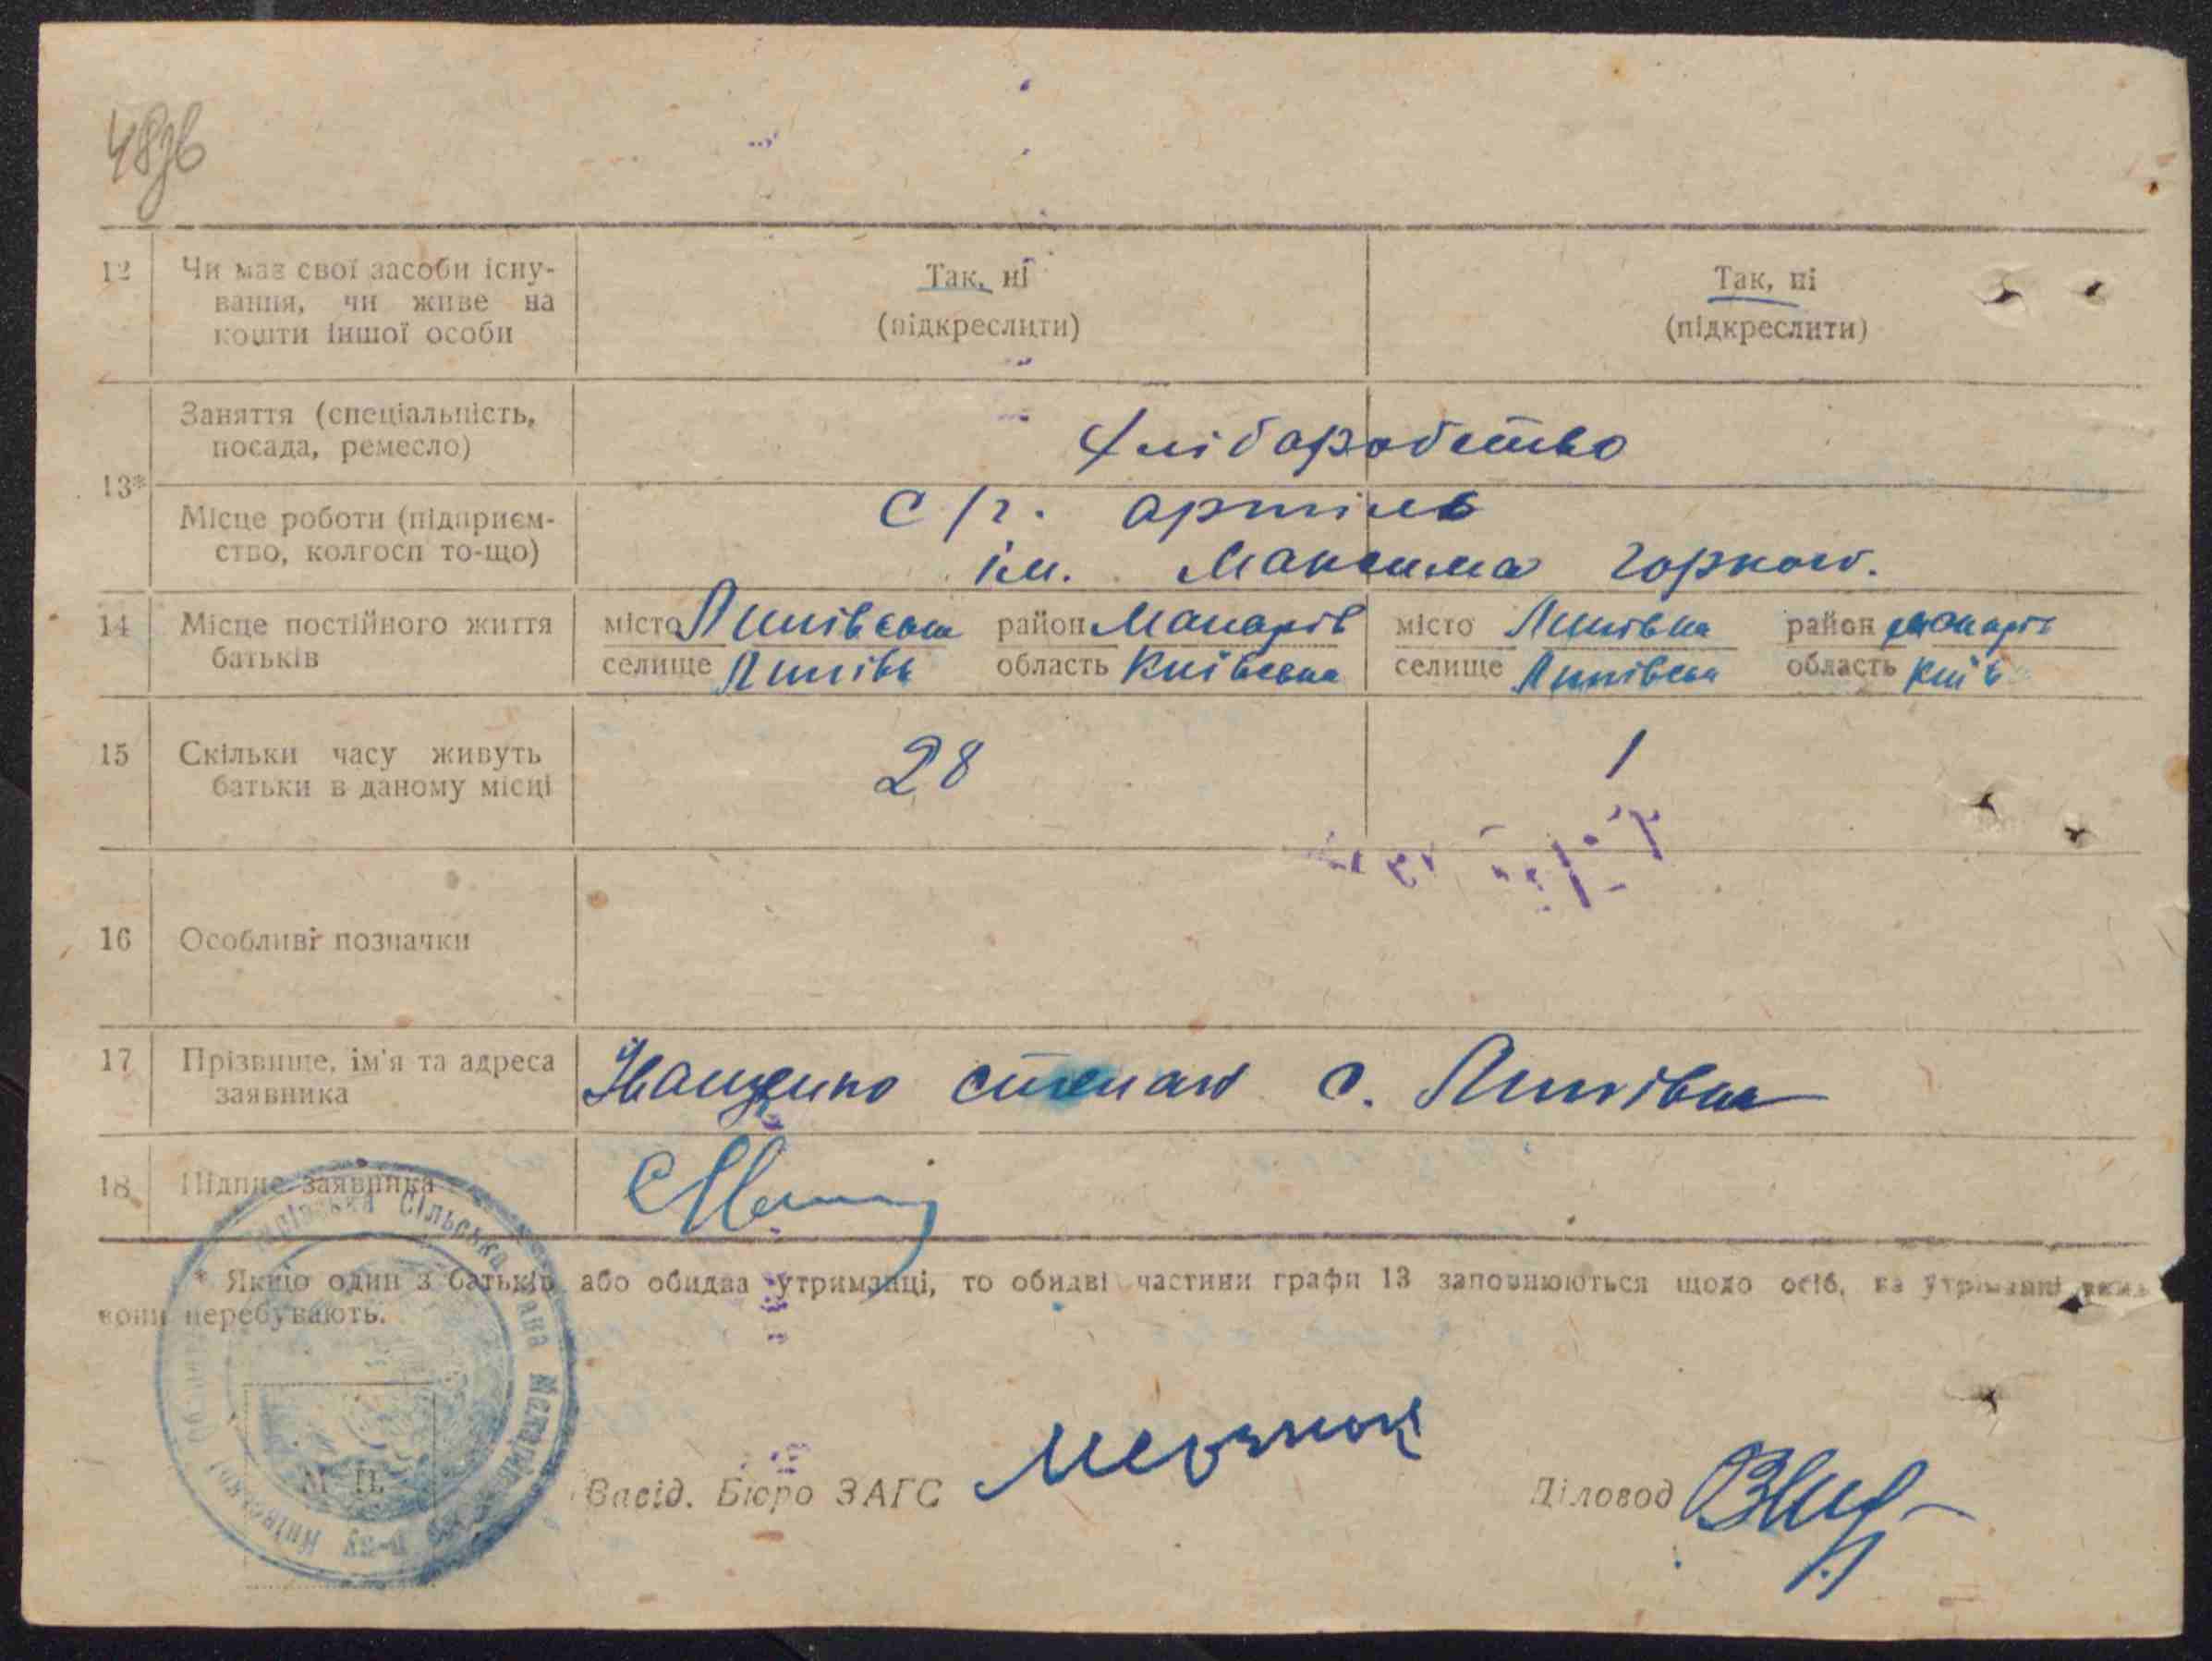 12 Чи має свої засоби існу-
вання, чи живе на
кошти іншої особи
Так, ні
(підкреслити)
Так, ні
(підкреслити)
13*
Заняття (спеціальність,
посада, ремесло)
Хліборобство
Місце роботи (підприєм-
ство, колгосп то-що)
с/г. артіль
ім. Максима Горкого.
14 Місце постійного життя
батьків
місто Липівська район Макарів
селище Липівк область Київська
місто Липівка район Макарів
селище Липівська область Київ
15 Скільки часу живуть
батьки в даному місці
28
1
16 Особливі позначки
17 Прізвище, ім'я та адреса
заявника
Іващенко Степан с. Липівка
18 Підпис заявника
* Якщо один з батьків або обидва утриманці, то обидві частини графи 13 заповнюються щодо осіб, на утриманні яких
вони перебувають.
Сільська
М. П.
Завід. Бюро ЗАГС
Діловод